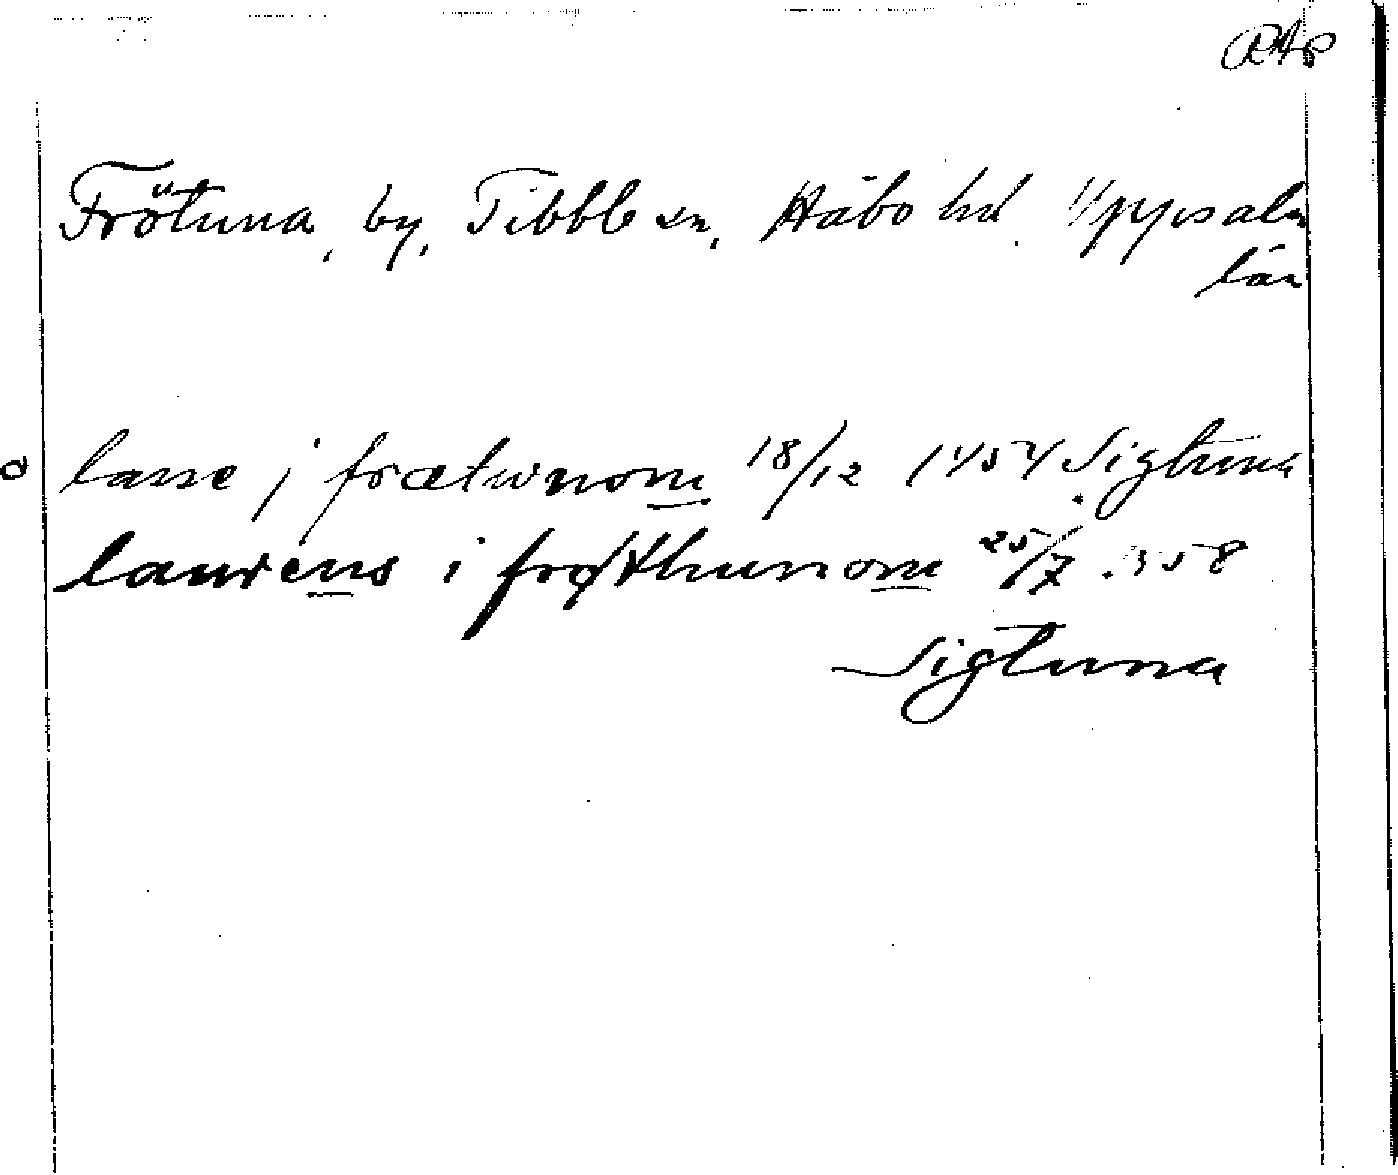 RAp
Frötuna, by, Tibble sn, Håbo hd. Uppsala
län
lasse j frætwnom 18/12 1454 Sigtuna
laurens i frøthunom 25/7
Sigtuna